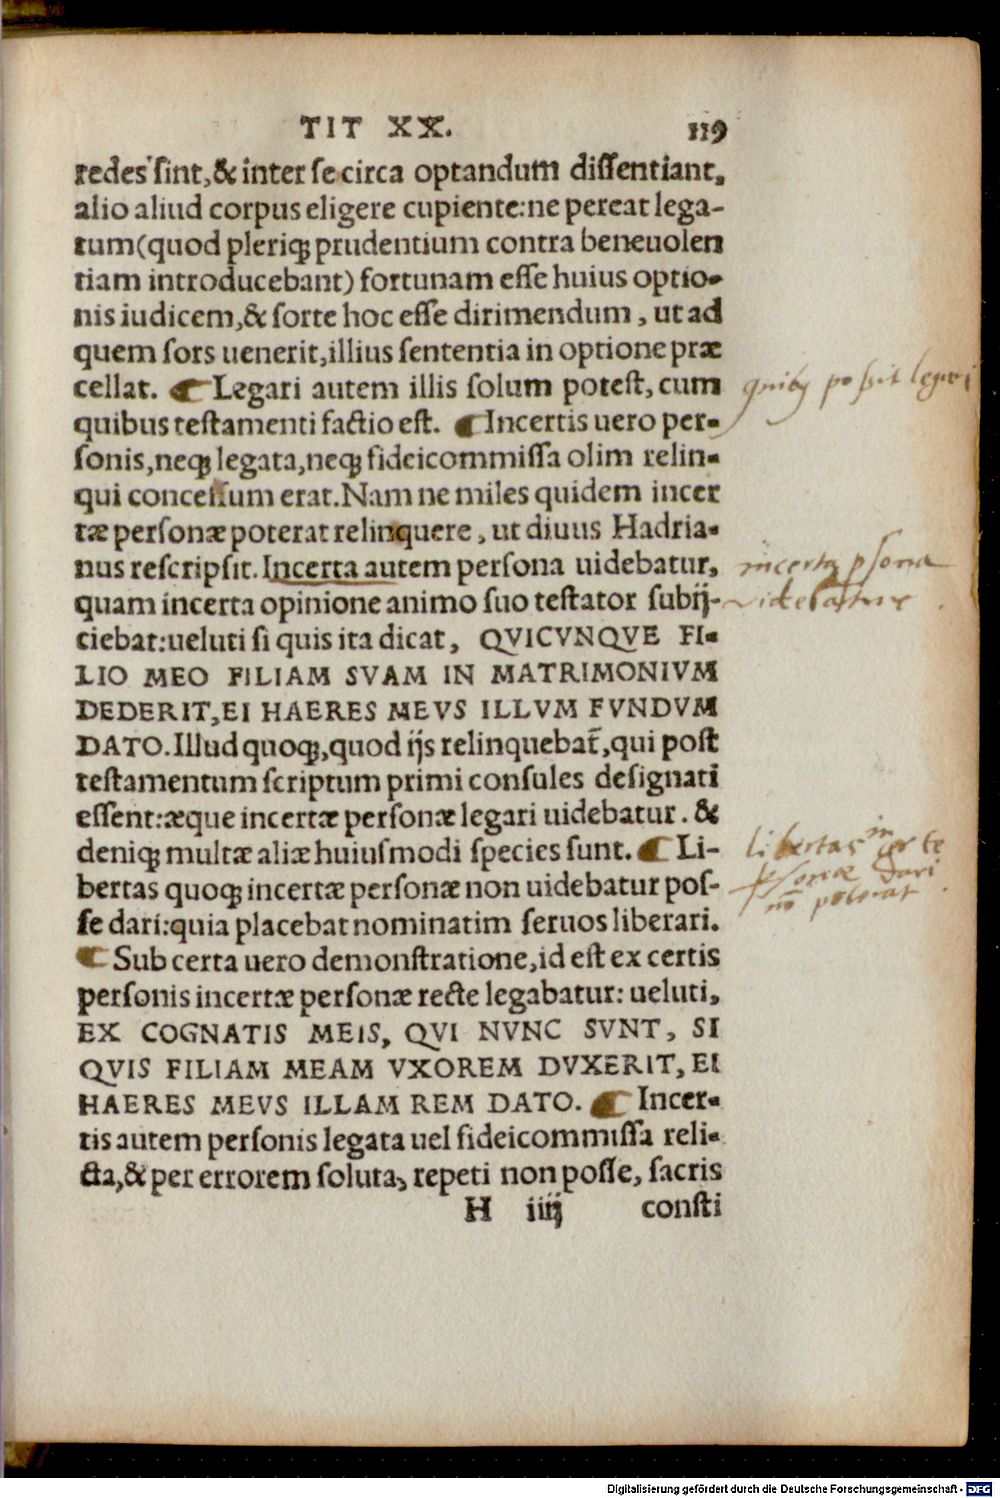 TIT XX. 119
redes sint,& inter se circa optandum dissentiant,
alio aliud corpus eligere cupiente:ne pereat lega-
tum(quod pleriqꝫ prudentium contra beneuolen
tiam introducebant) fortunam esse huius optio-
nis iudicem,& sorte hoc esse dirimendum, ut ad
quem sors uenerit,illius sententia in optione præ
cellat. ¶ Legari autem illis solum potest, cum
quibus testamenti factio est. ¶ Incertis uero per-
sonis,neqꝫ legata,neqꝫ fideicommissa olim relin-
qui concessum erat.Nam ne miles quidem incer
tæ personæ poterat relinquere, ut diuus Hadria-
nus rescripsit.Incerta autem persona uidebatur,
quam incerta opinione animo suo testator subij-
ciebat:ueluti si quis ita dicat, QVICVNQVE FI-
LIO MEO FILIAM SVAM IN MATRIMONIVM
DEDERIT,EI HAERES MEVS ILLVM FVNDVM
DATO.Illud quoqꝫ,quod ijs relinquebat̃,qui post
testamentum scriptum primi consules designati
essent:æque incertæ personæ legari uidebatur. &
deniqꝫ multæ aliæ huiusmodi species sunt. ¶ Li-
bertas quoqꝫ incertæ personæ non uidebatur pos-
se dari:quia placebat nominatim seruos liberari.
¶ Sub certa uero demonstratione,id est ex certis
personis incertæ personæ recte legabatur: ueluti,
EX COGNATIS MEIS, QVI NVNC SVNT, SI
QVIS FILIAM MEAM VXOREM DVXERIT, EI
HAERES MEVS ILLAM REM DATO. ¶ Incer-
tis autem personis legata uel fideicommissa reli-
cta,& per errorem soluta, repeti non posse, sacris
H iiij consti
quibꝫ possit legari
incerta psona
videbatur
libertas incerte
psonæ dari
nō poterat
Digitalisierung gefördert durch die Deutsche Forschungsgemeinschaft - DFG